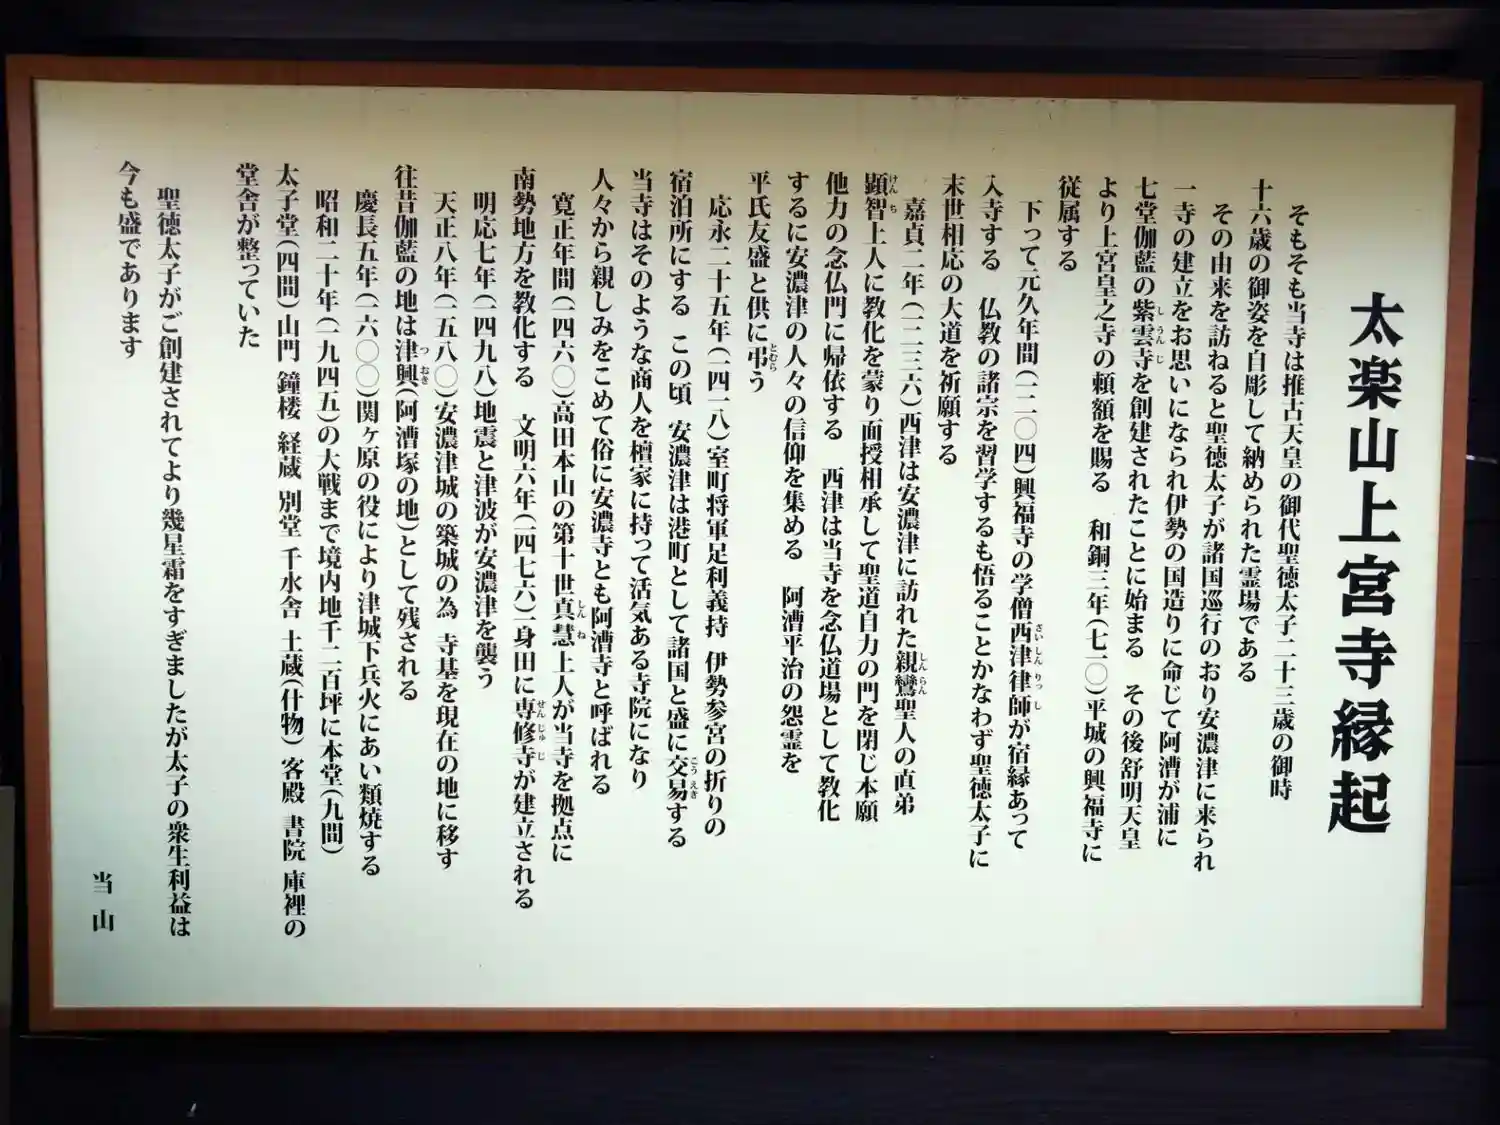 太楽山上宮寺縁起
そもそも当寺は推古天皇の御代聖徳太子二十三歳の御時
十六歳の御姿を自彫して納められた霊場である
その由来を訪ねると聖徳太子が諸国巡行のおり安濃津に来られ
一寺の建立をお思いになられ伊勢の国造りに命じて阿漕が浦に
七堂伽藍の紫雲寺を創建されたことに始まる　その後舒明天皇
より上宮皇之寺の頼額を賜る　和銅三年(七一〇)平城の興福寺に
従属する
下って元久年間(一二〇四)興福寺の学僧西津律師が宿縁あって
入寺する　仏教の諸宗を習学するも悟ることかなわず聖徳太子に
末世相応の大道を祈願する
嘉貞二年(一二三六)西津は安濃津に訪れた親鸞聖人の直弟
顕智上人に教化を蒙り面授相承して聖道自力の門を閉じ本願
他力の念仏門に帰依する　西津は当寺を念仏道場として教化
するに安濃津の人々の信仰を集める　阿漕平治の怨霊を
平氏友盛と供に弔う
応永二十五年(一四一八)室町将軍足利義持 伊勢参宮の折りの
宿泊所にする この頃 安濃津は港町として諸国と盛に交易する
当寺はそのような商人を檀家に持って活気ある寺院になり
人々から親しみをこめて俗に安濃寺とも阿漕寺と呼ばれる
寛正年間(一四六〇)高田本山の第十世真慧上人が当寺を拠点に
南勢地方を教化する　文明六年(一四七六)一身田に専修寺が建立される
明応七年(一四九八)地震と津波が安濃津を襲う
天正八年(一五八〇)安濃津城の築城の為 寺基を現在の地に移す
往昔伽藍の地は津興(阿漕塚の地)として残される
慶長五年(一六〇〇)関ヶ原の役により津城下兵火にあい類焼する
昭和二十年(一九四五)の大戦まで境内地千二百坪に本堂(九間)
太子堂(四間)山門 鐘楼 経蔵 別堂 千水舎 土蔵(什物)客殿 書院 庫裡の
堂舎が整っていた
聖徳太子がご創建されてより幾星霜をすぎましたが太子の衆生利益は
今も盛であります
当山